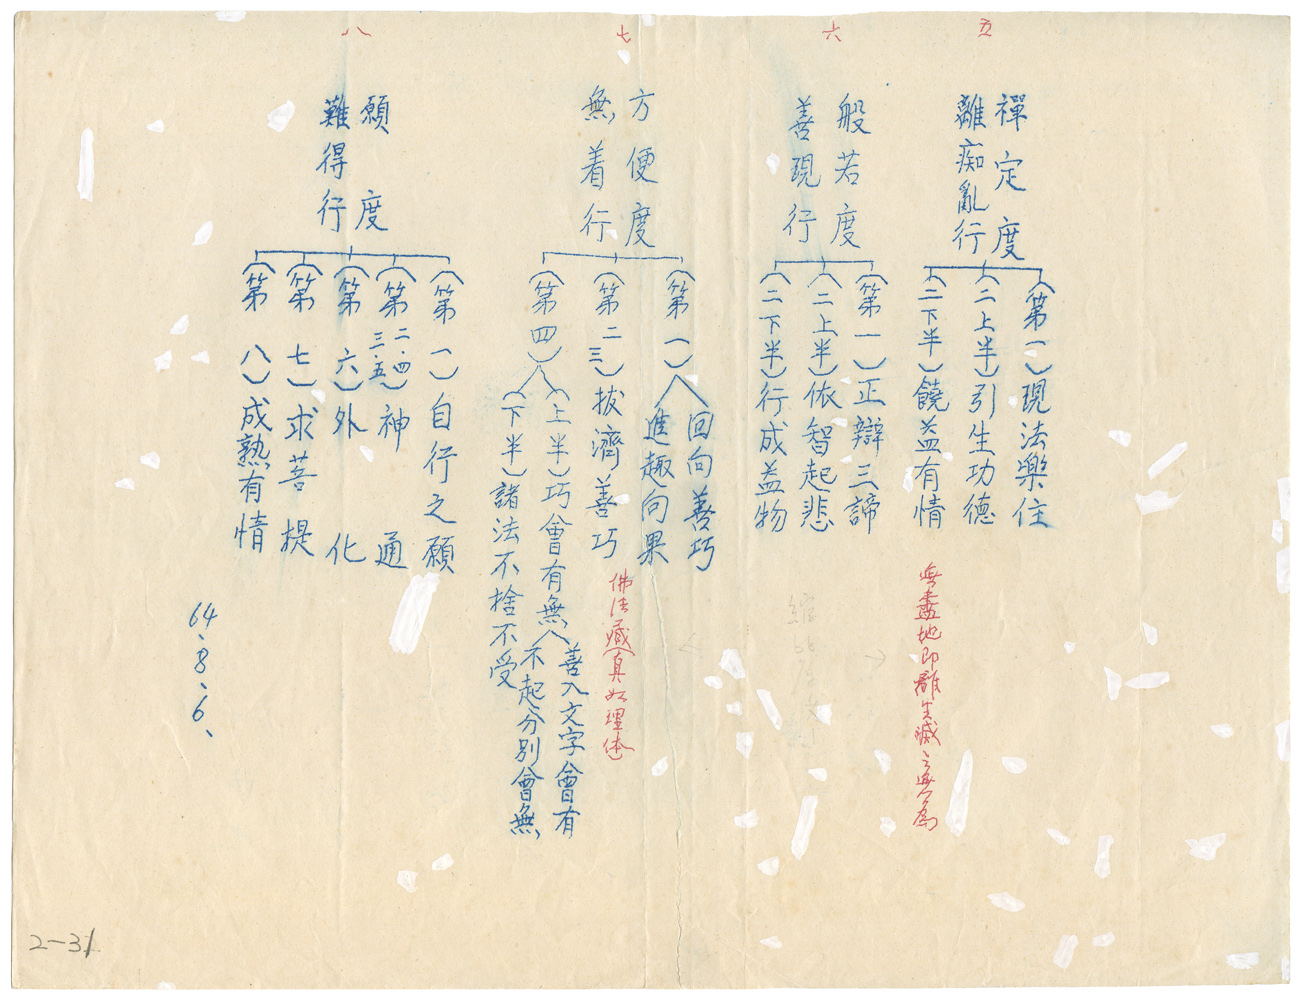 五
禪定度
離痴亂行
（第一）現法樂住
（二上半）引生功德
（二下半）饒益有情
無盡地即離生滅之無為
六
般若度
善現行
（第一）正辯三諦
（二上半）依智起悲
（二下半）行成益物
七
方便度
無着行
（第一）
回向善巧
進趣向果
（第二三）拔濟善巧
佛法藏（真如理体）
（第四）
（上半）巧會有無
善入文字會有
不起分別會無
（下半）諸法不捨不受
八
願度
難得行
（第一）自行之願
（第二.四三.五）神通
（第六）外化
（第七）求菩提
（第八）成熟有情
64、8、6、
2-31